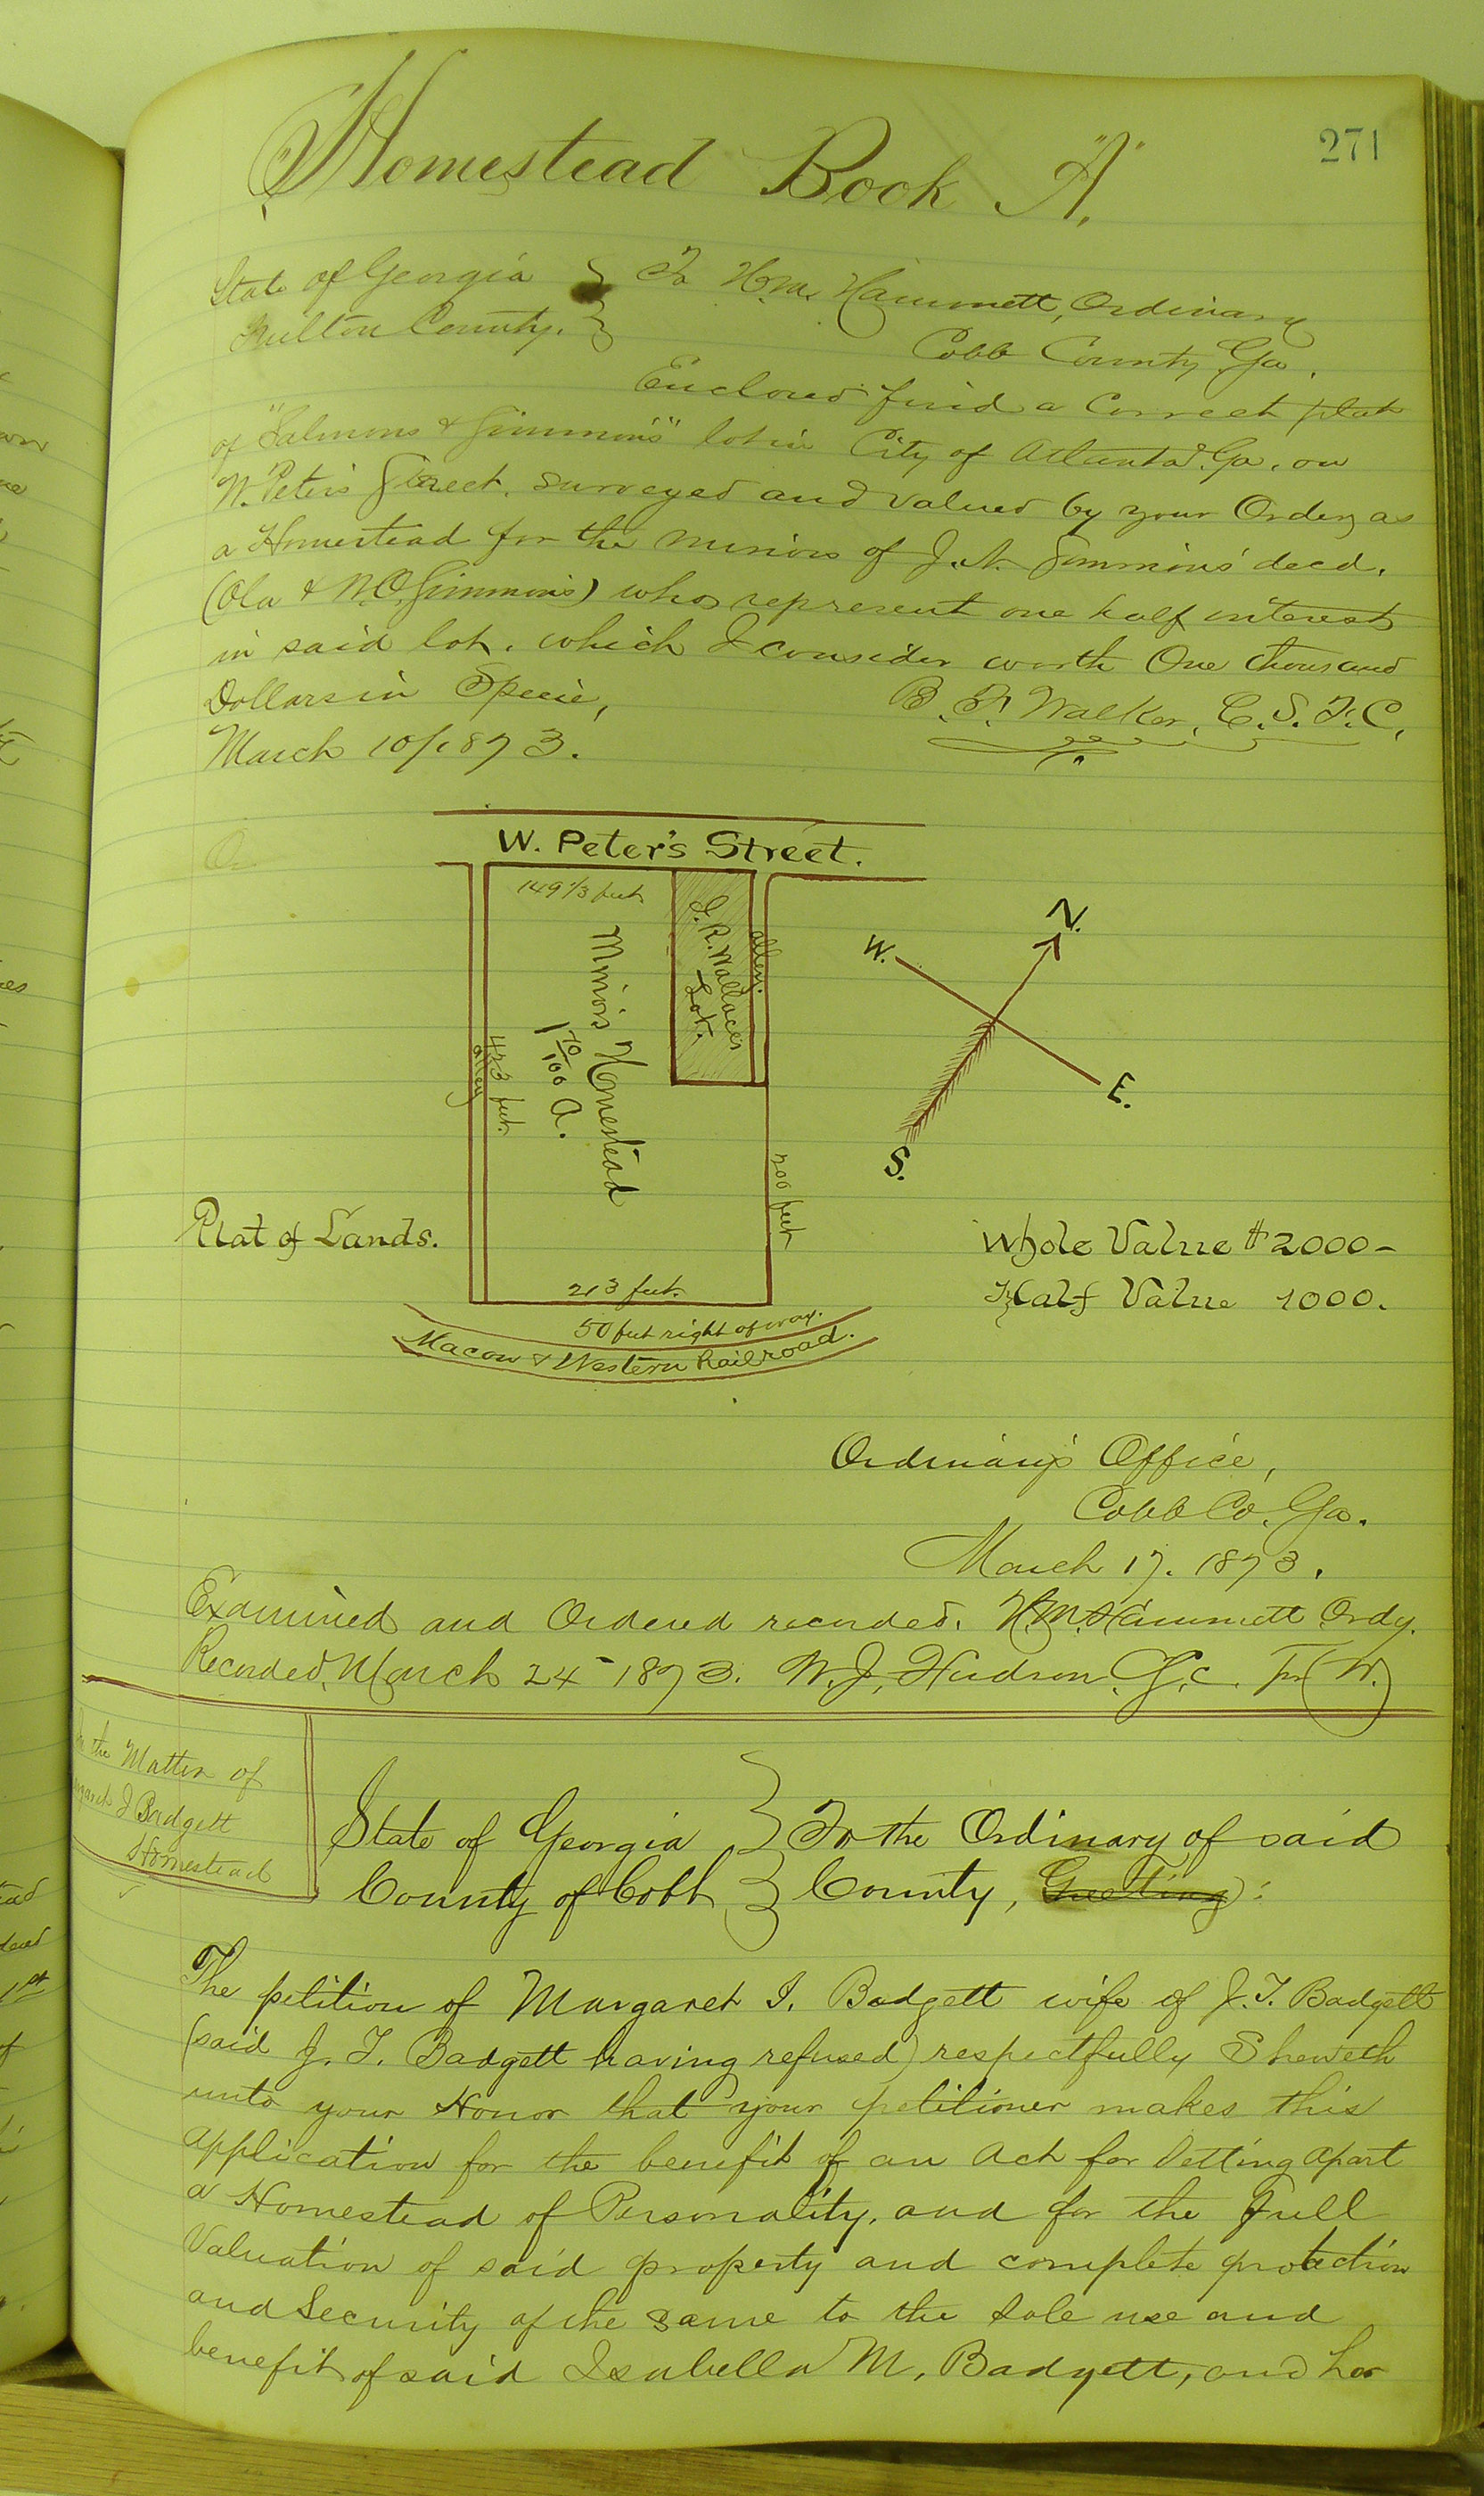 271
Homestead Book "A".
State of Georgia
Fulton County.
To H. M. Hammett, Ordinary
Cobb County Ga.
Enclosed find a Correct plat
of "Salmons & Simmons" lot in City of Atlanta Ga. on
W. Peter's Street, surveyed and valued by your Order, as
a Homestead for the minors of J. N. Simmons' decd.
(Ola & W.O. Simmons) who represent one half interest
in said lot, which I consider worth One thousand
Dollars in Specie,
B. F. Walker, C. S. F. C.
March 10/1873.
W. Peter's Street.
149 1/3 feet
J. R. Wallace's
Lot.
alley.
Minors Homestead
1 70/100 A.
433 feet.
alley
200 feet
213 feet.
50 feet right of way.
Macon & Western Railroad.
N.
W.
E.
S.
Plat of Lands.
Whole Value $2000-
Half Value 1000.
Ordinary's Office,
Cobb Co. Ga.
March 17. 1873.
Examined and Ordered recorded. H. M. Hammett Ordy.
Recorded, March 24 - 1873. W. J. Hudson
the Matter of
J Badgett
Homestead
State of Georgia
County of Cobb
To the Ordinary of said
County, Greeting:
The petition of Margaret I. Badgett wife of J. T. Badgett
(said J. T. Badgett having refused) respectfully Sheweth
unto your Honor that your petitioner makes this
application for the benefit of an Act for Setting apart
a Homestead of Personality, and for the full
Valuation of said property and complete protection
and Security of the same to the Sole use and
benefit of said Isabella M. Badgett, and her